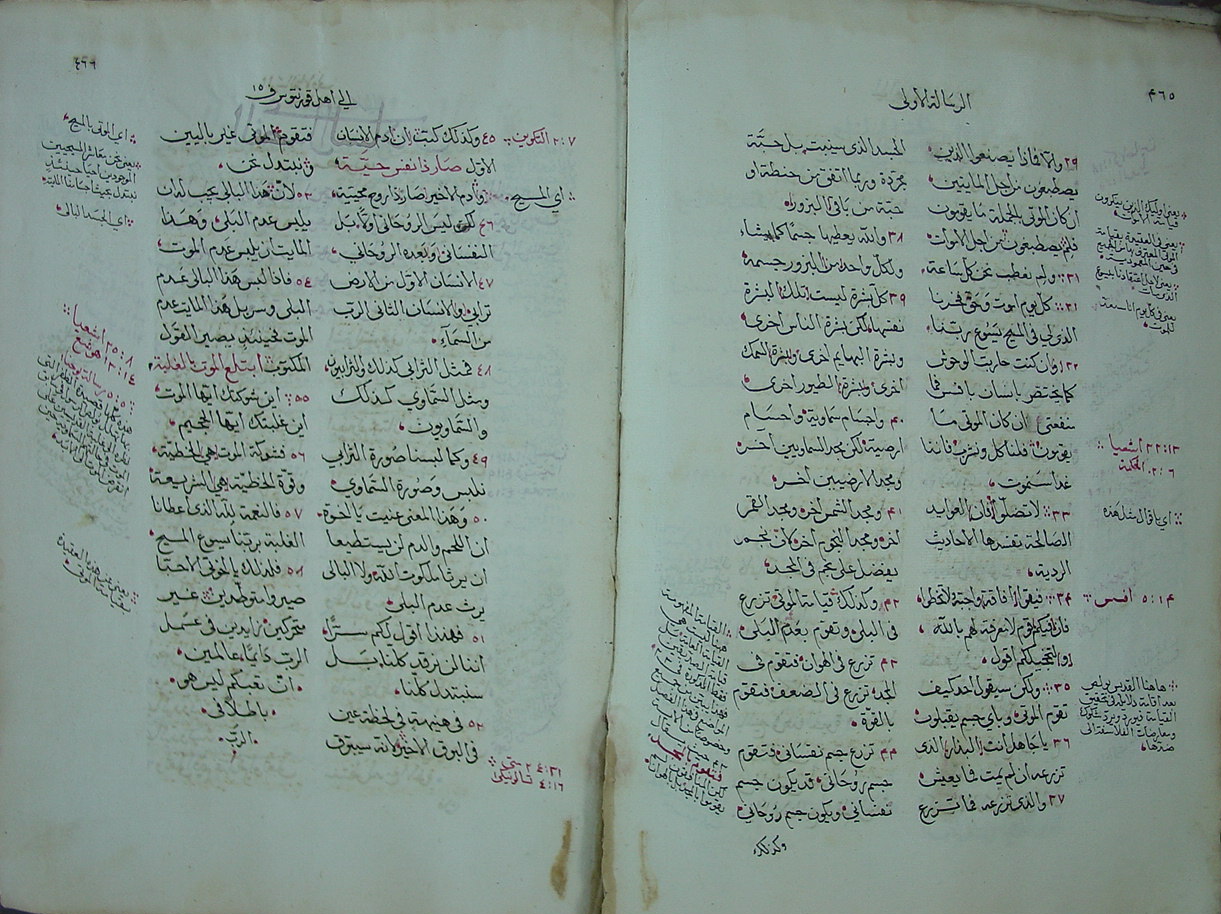 ٤٦٥
الرسالة الاولى
٢٩ والا فماذا يصنعوا الذين
يصطبغون من اجل المايتين
ان كان الموتى بالجملة ما يقومون
فلم يصطبغون من اجل الاموات
٣٠ ولم نعطب نحن كل ساعة
٣١ كل يوم اموت وحق فخرنا
الذي لي في المسيح يسوع ربنا
٣٢ وان كنت حاربت الوحوش
كما يختص بانسان بافسس فما
منفعتي ان كان الموتى ما
يقومون فلناكل ونشرب فاننا
غدا سنموت
٣٣ لا تضلوا فان العوايد
الصالحة تفسدها الاحاديث
الردية
٣٤ فيقوا افاقة واجبة لا تخطوا
فان فيكم قوم لا معرفة لهم بالله
ولتخجيلكم اقول
٣٥ ولكن سيقول احد كيف
تقوم الموتى وباي جسم يقبلون
٣٦ يا جاهل انت البذار الذي
تزرعه ان لم يمت فما يعيش
٣٧ والذي تزرعه فما تزرع
الجسد الذي سينبت بل حبة
مجردة وربما اتفق من حنطة او
حبة من باقي البزور
٣٨ والله يعطيها جسما كما يشاء
ولكل واحد من البزور جسمه
٣٩ كل بشرة ليست تلك البشرة
نفسها لكن بشرة الناس اخرى
وبشرة البهايم اخرى وبشرة السمك
اخرى وبشرة الطيور اخرى
٤٠ واجسام سماوية واجسام
ارضية لكن مجد السماويين اخر
ومجد الارضيين اخر
٤١ ومجد الشمس اخر ومجد القمر
اخر ومجد النجوم اخر لان نجم
يفضل على نجم في المجد
٤٢ وكذلك قيامة الموتى تزرع
في البلى وتقوم بعدم البلى
٤٣ تزرع في الهوان فتقوم في
المجد تزرع في الضعف فتقوم
بالقوة
٤٤ تزرع جسم نفساني فتقوم
جسم روحاني قد يكون جسم
نفساني ويكون جسم روحاني
وكذلك
٢٢:١٣ اشعيا
٢:٦ الحكمة
اي باقوال مثل هذه
٥:١٤ افسس
هاهنا القديس بولس
فتقوم بالمجد
٤٦٦
الى اهل قورنتوس ف ١٥
٢:٧ التكوين
٤٥ وكذلك كتب ان ادم الانسان
الاول صار ذا نفس حية
وادم الاخير صار ذا روح محيية
اي المسيح
٤٦ لكن ليس الروحاني اولا بل
النفساني وبعده الروحاني
٤٧ الانسان الاول من الارض
ترابي والانسان الثاني الرب
من السماء
٤٨ فمثل الترابي كذلك والترابيون
ومثل السماوي كذلك
والسماويون
٤٩ وكما لبسنا صورة الترابي
نلبس وصورة السماوي
٥٠ وهذا المعنى عنيت يا اخوة
ان اللحم والدم لن يستطيعا
ان يرثا ملكوت الله ولا البالي
يرث عدم البلى
٥١ فهذا اقول لكم سرا
اننا لن نرقد كلنا بل
سنبتدل كلنا
٥٢ في هنيهة في لحظة عين
في البوق الاخير لانه سيبوق
٢٤:٣١ متى
٤:١٦ تسالونيكي
فتقوم الموتى غير باليين
ونبتدل نحن
٥٣ لان هذا البالي يجب له ان
يلبس عدم البلى وهذا
المايت ان يلبس عدم الموت
٥٤ فاذا لبس هذا البالي عدم
البلى وسربل هذا المايت عدم
الموت فحينئذ يصير القول
المكتوب ابتلع الموت بالغلبة
٥٥ اين شوكتك ايها الموت
اين غلبتك ايها الجحيم
٥٦ فشوكة الموت هي الخطية
وقوة الخطية هي الشريعة
٥٧ فالنعمة لله الذي اعطانا
الغلبة بربنا يسوع المسيح
٥٨ فلذلك يا اخوتي الاحبا
صيروا متوطدين غير
متحركين زايدين في عمل
الرب دايما عالمين
ان تعبكم ليس هو
باطلا في
الرب
اي الموتى بالمسيح
اي الجسد البالي
٢٥:٨ اشعيا
١٣:١٤ هوشع